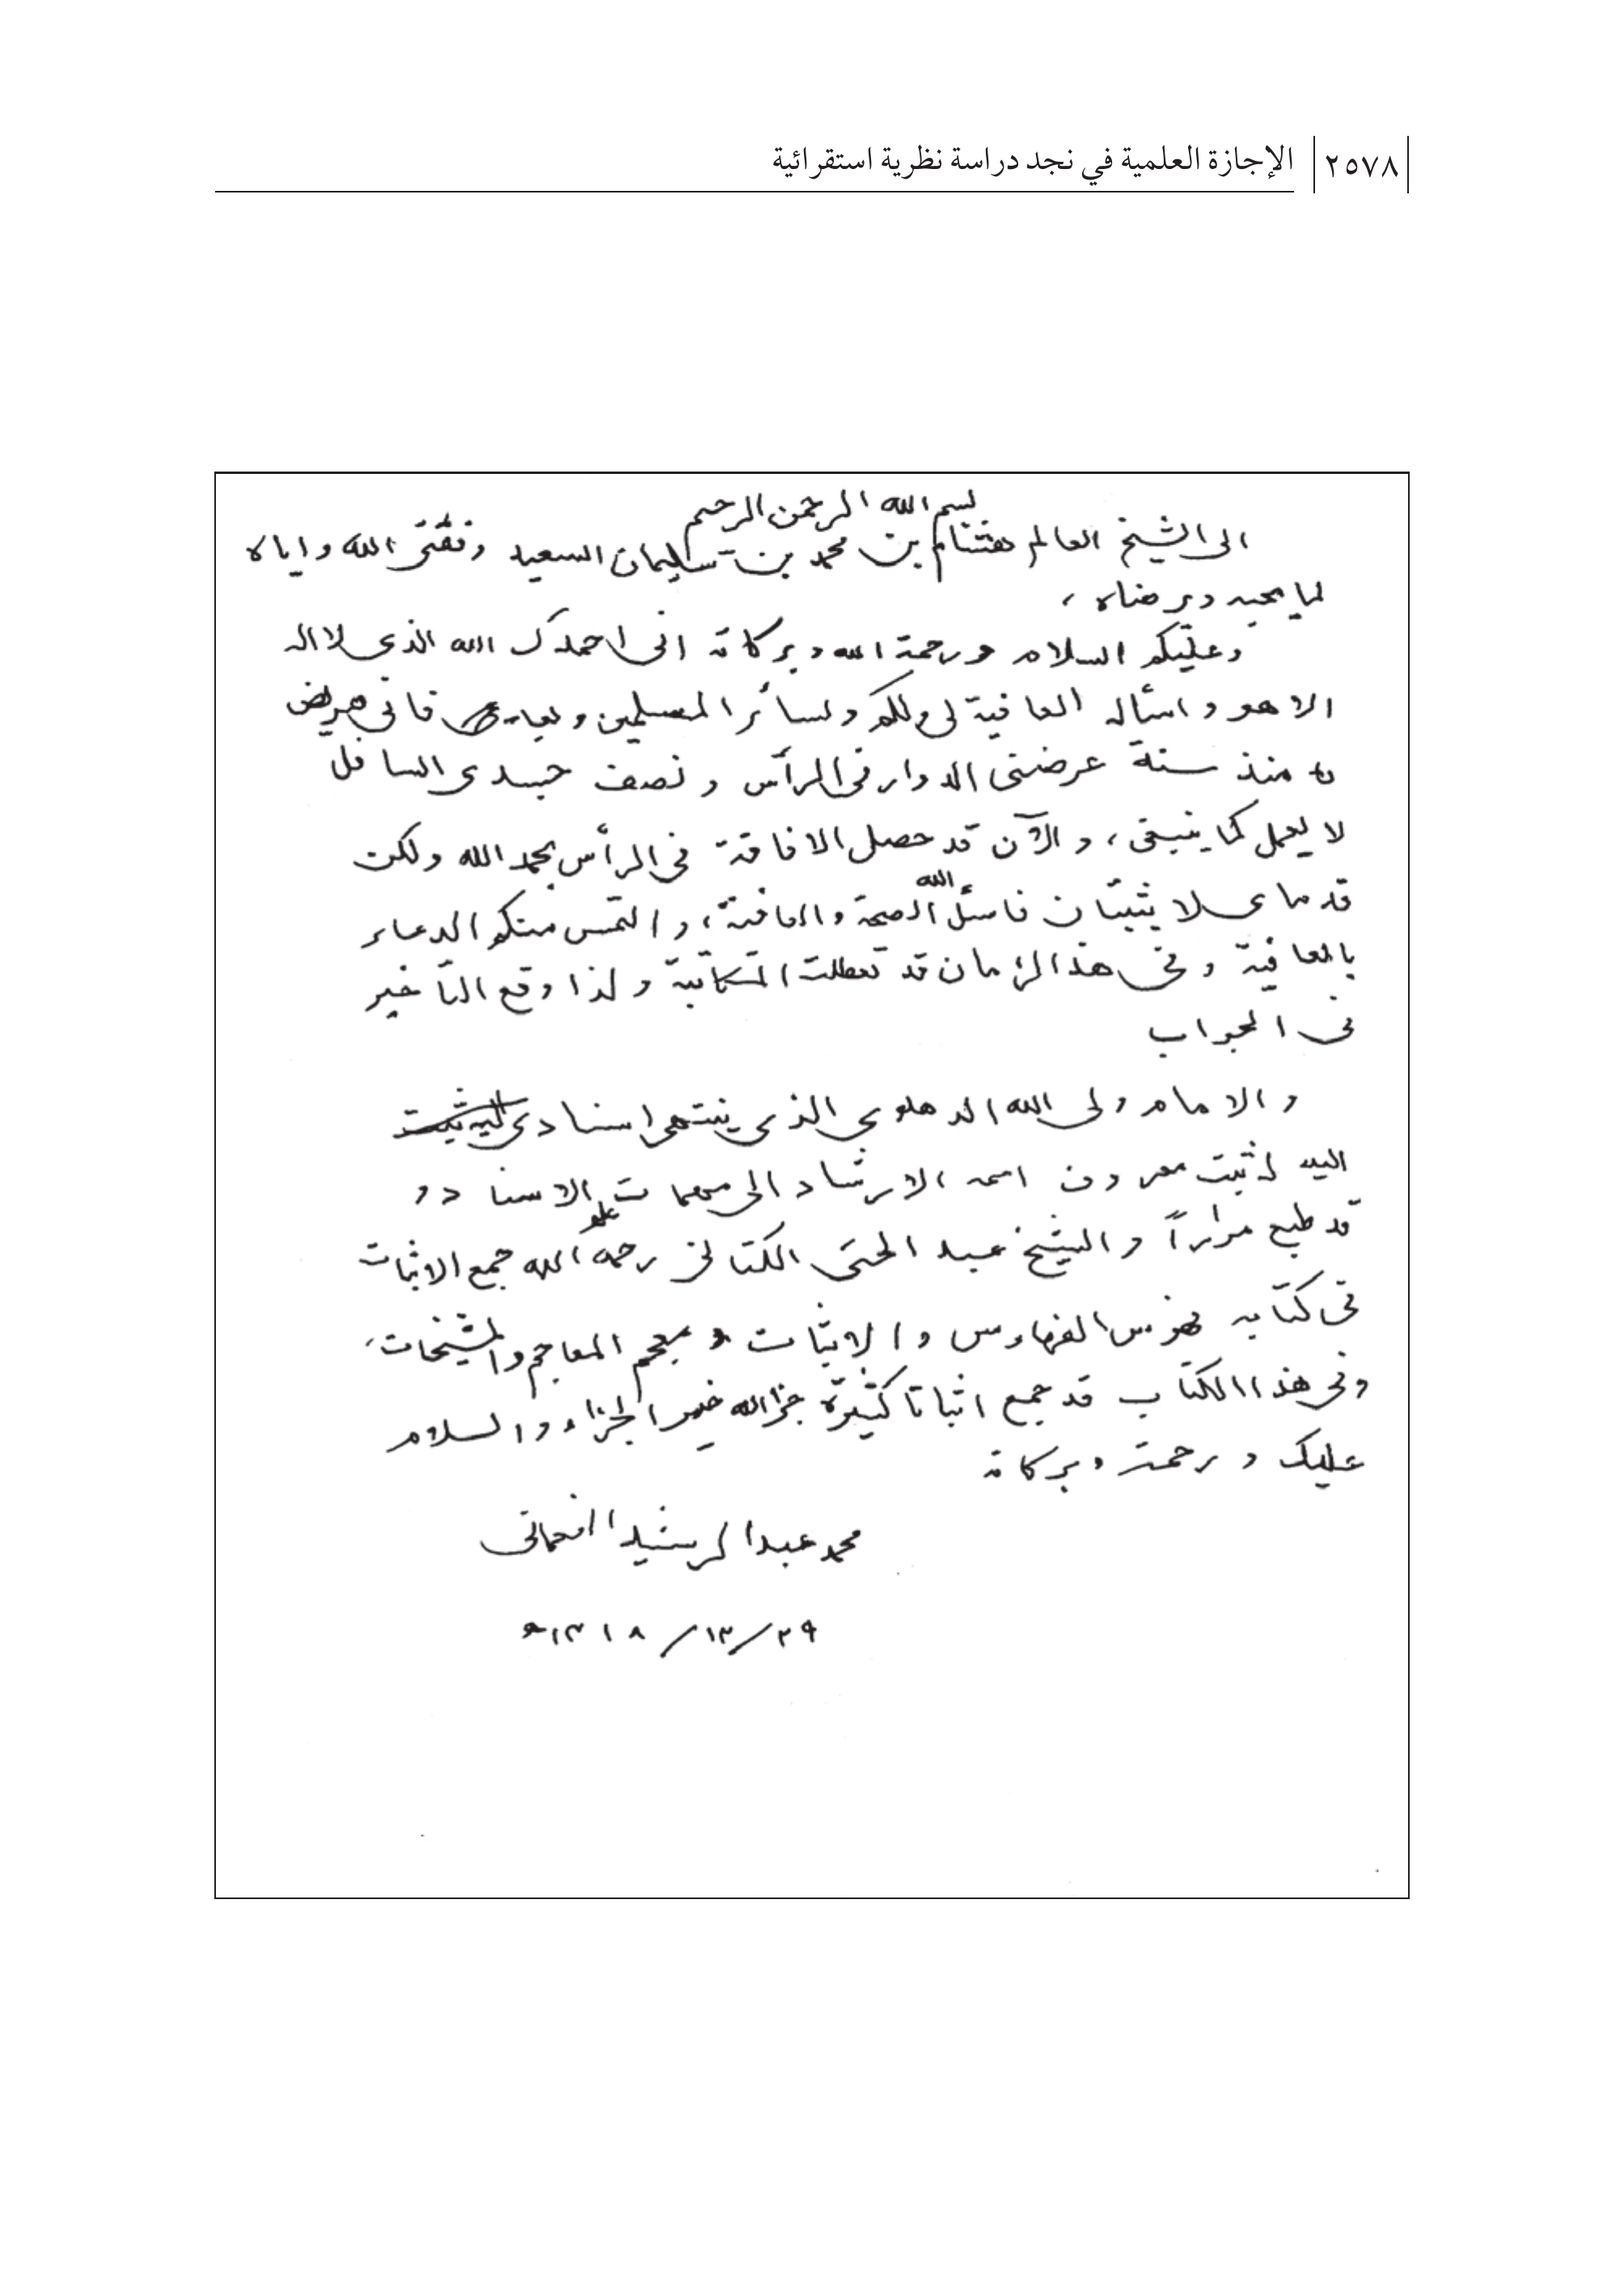 ٢٥٧٨ الإجازة العلمية في نجد دراسة نظرية استقرائية
بسم الله الرحمن الرحيم
الى الشيخ العالم هشام بن محمد بن سليمان السعيد وفقنى الله واياه
لما يحبه ويرضاه ،
وعليكم السلام ورحمة الله وبركاته انى احمدك الله الذى لا اله
الا هو واسأله العافية لى ولكم ولسائر المسلمين فانى مريض
منذ سنة عرضتنى الدوار فى الرأس ونصف جسدى السافل
لا يعمل كما ينبغى ، والآن قد حصل الافاقة فى الرأس بحمد الله ولكن
قدماى لا يثبتان فاسئل الله الصحة والعافية ، والتمس منكم الدعاء
بالعافية وفى هذا الزمان قد تعطلت المكاتبة ولذا وقع التأخير
فى الجواب
والامام ولى الله الدهلوى الذى ينتهى اسنادى اليه ثبت
اليه له ثبت معروف اسمه الارشاد الى مهمات الاسناد و
قد طبع مراراً والشيخ عبد الحى الكتانى رحمه الله جمع الاثبات
فى كتابه فهرس الفهارس والاثبات و معجم المعاجم والمشيخات،
وفى هذا الكتاب قد جمع اثباتا كثيرة جزاالله خير الجزاء والسلام
عليك ورحمة وبركاته
محمد عبد الرشيد النعمانى
٢٩/١٢/١٤١٨ه